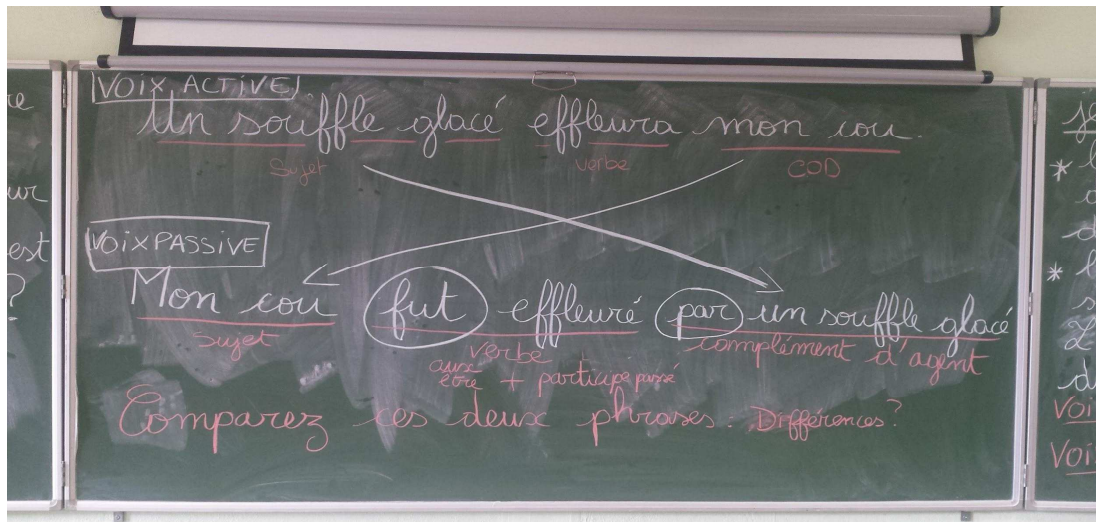 re
ur
est
?
VOIX ACTIVE
Un souffle glacé effleura mon cou.
Sujet verbe COD
VOIX PASSIVE
Mon cou fut effleuré par un souffle glacé
Sujet verbe complément d'agent
aux être + participe passé
Comparez ces deux phrases. Différences?
je
* l
d
* l
s
d
Voi
Voi